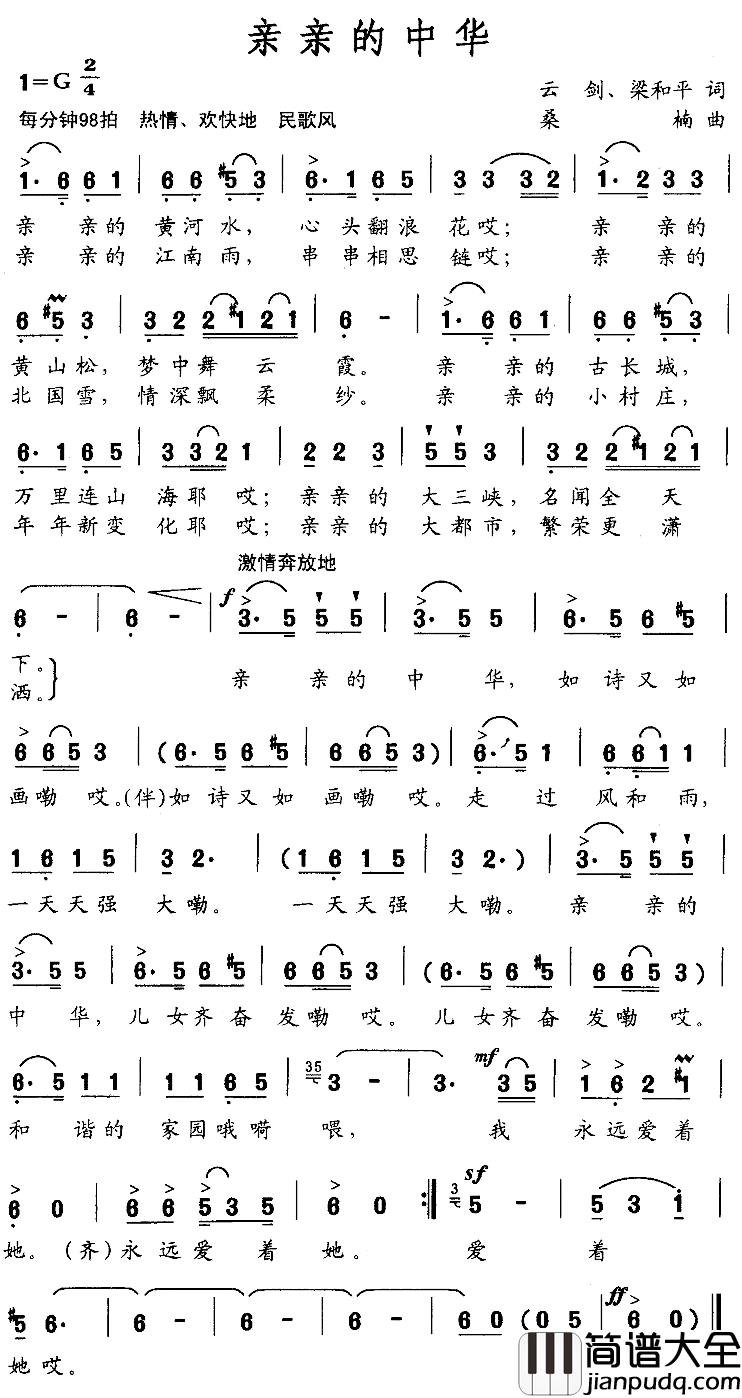 亲亲的中华
1=G 2/4
云 剑、梁和平 词
每分钟98拍 热情、欢快地 民歌风
桑 楠 曲
1· 6 6 1 | 6 6 #5 3 | 6· 1 6 5 | 3 3 3 2 | 1· 2 3 3 |
亲 亲的 黄河水， 心头翻浪 花哎； 亲 亲的
亲 亲的 江南雨， 串串相思 链哎； 亲 亲的
6 #5 3 | 3 2 2 #1 2 1 | 6 - | 1· 6 6 1 | 6 6 #5 3 |
黄山松， 梦中舞 云 霞。 亲 亲的 古长城，
北国雪， 情深飘 柔 纱。 亲 亲的 小村庄，
6· 1 6 5 | 3 3 2 1 | 2 2 3 | 5 5 3 | 3 2 2 #1 2 1 |
万里连山 海耶 哎； 亲亲的 大三峡， 名闻全 天
年年新变 化耶 哎； 亲亲的 大都市， 繁荣更 潇
激情奔放地
6 - | 6 - | f 3· 5 5 5 | 3· 5 5 | 6· 5 6 #5 |
下。
洒。
亲 亲的 中 华， 如诗又如
6 6 5 3 | (6· 5 6 #5 | 6 6 5 3) | 6· 5 1 | 6 6 1 1 |
画嘞 哎。(伴)如诗又如 画嘞 哎。走 过 风和雨，
1 6 1 5 | 3 2· | (1 6 1 5 | 3 2·) | 3· 5 5 5 |
一天天强 大嘞。 一天天强 大嘞。 亲 亲的
3· 5 5 | 6· 5 6 #5 | 6 6 5 3 | (6· 5 6 #5 | 6 6 5 3) |
中 华， 儿女齐奋 发嘞 哎。 儿女齐奋 发嘞 哎。
6· 5 1 1 | 1 1 6 5 | 35 3 - | 3· mf 3 5 | 1 6 2 #1 |
和 谐的 家园哦嗬 喂， 我 永远爱着
6 0 | 6 6 5 3 5 | 6 0 :‖ 3 sf 5 - | 5 3 1 |
她。(齐)永远爱 着 她。 爱 着
#5 6· | 6 - | 6 - | 6 - | 6 0 (0 5 | ff 6 0) ‖
她 哎。
简谱大全
jianpudq.com